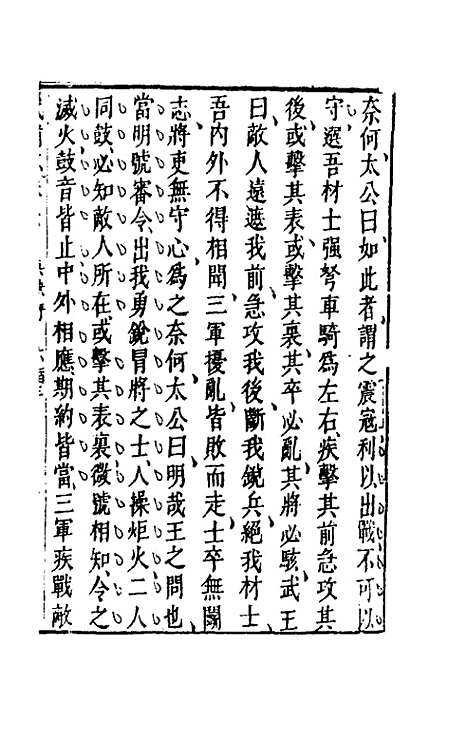 奈何太公曰如此者謂之震寇利以出戰不可以
守選吾材士强弩車騎爲左右疾擊其前急攻其
後或擊其表或擊其裏其卒必亂其將必駭武王
曰敵人遠遮我前急攻我後斷我銳兵絕我材士
吾內外不得相聞三軍擾亂皆敗而走士卒無鬬
志將吏無守心爲之奈何太公曰明哉王之問也
當明號審令出我勇銳冒將之士人操炬火二人
同鼓必知敵人所在或擊其表裏微號相知令之
滅火鼓音皆止中外相應期約皆當三軍疾戰敵